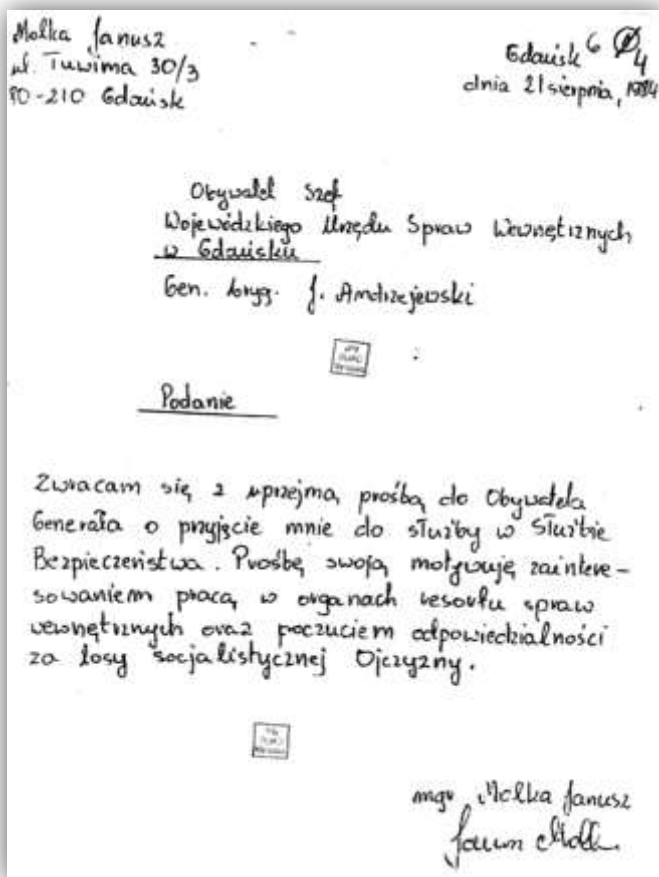 Molka Janusz
ul. Tuwima 30/3
80-210 Gdańsk
Gdańsk 6 4
dnia 21 sierpnia, 1984
Obywatel Szef
Wojewódzkiego Urzędu Spraw Wewnętrznych
w Gdańsku
Gen. bryg. J. Andrzejewski
Podanie
Zwracam się z uprzejmą prośbą do Obywatela
Generała o przyjęcie mnie do służby w Służbie
Bezpieczeństwa. Prośbę swoją motywuję zaintere-
sowaniem pracą w organach resortu spraw
wewnętrznych oraz poczuciem odpowiedzialności
za losy socjalistycznej Ojczyzny.
mgr Molka Janusz